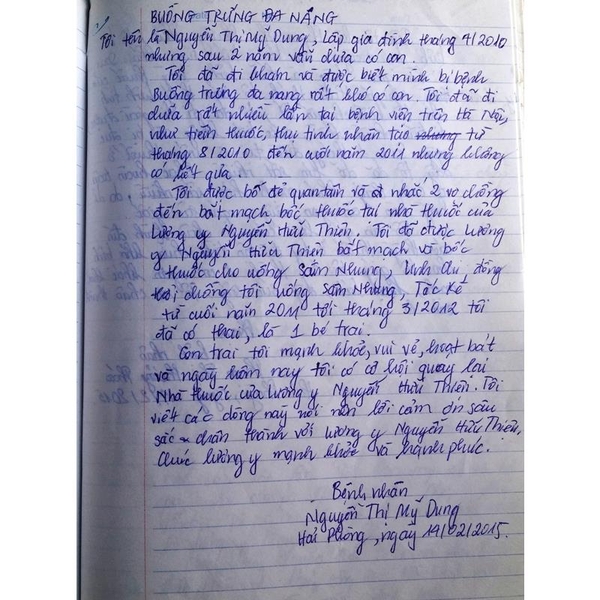 BUỒNG TRỨNG ĐA NANG
Tôi tên là Nguyễn Thị Mỹ Dung, Lập gia đình tháng 4/2010
nhưng sau 2 năm vẫn chưa có con.
Tôi đã đi khám và được biết mình bị bệnh
Buồng trứng đa nang rất khó có con. Tôi đã đi
chữa rất nhiều lần tại bệnh viện trên Hà Nội,
như tiêm thuốc, thụ tinh nhân tạo nhưng từ
tháng 8/2010 đến cuối năm 2011 nhưng không
có kết quả.
Tôi được bố đẻ quan tâm và nhắc 2 vợ chồng
đến bắt mạch bốc thuốc tại nhà thuốc của
Lương y Nguyễn Hữu Thiên. Tôi đã được Lương
y Nguyễn Hữu Thiên bắt mạch và bốc
thuốc cho uống Sâm Nhung, đồng
thời chồng tôi uống Sâm Nhung, Tắc Kè
từ cuối năm 2011 tới tháng 3/2012 tôi
đã có thai, là 1 bé trai.
Con trai tôi mạnh khỏe, vui vẻ, hoạt bát
và ngày hôm nay tôi có cơ hội quay lại
Nhà thuốc của lương y Nguyễn Hữu Thiên. Tôi
viết các dòng này nói nên lời cảm ơn sâu
sắc chân thành với lương y Nguyễn Hữu Thiên,
Chúc lương y mạnh khỏe và hạnh phúc.
Bệnh nhân
Nguyễn Thị Mỹ Dung
Hải Phòng, ngày 19/02/2015.